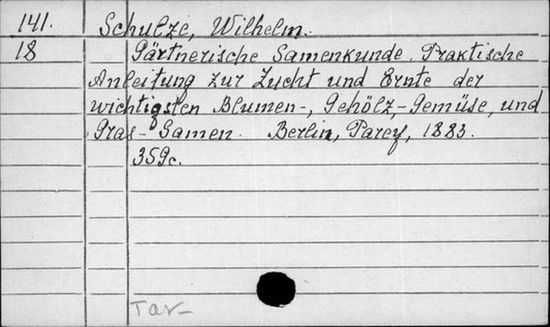 141. Schulze, Wilhelm.
18 Gärtnerische Samenkunde. Praktische
Anleitung zur Zucht und Ernte der
wichtigsten Blumen-, Gehölz-, Gemüse, und
Gras-Samen. Berlin, Parey, 1883.
359c.
Tar-